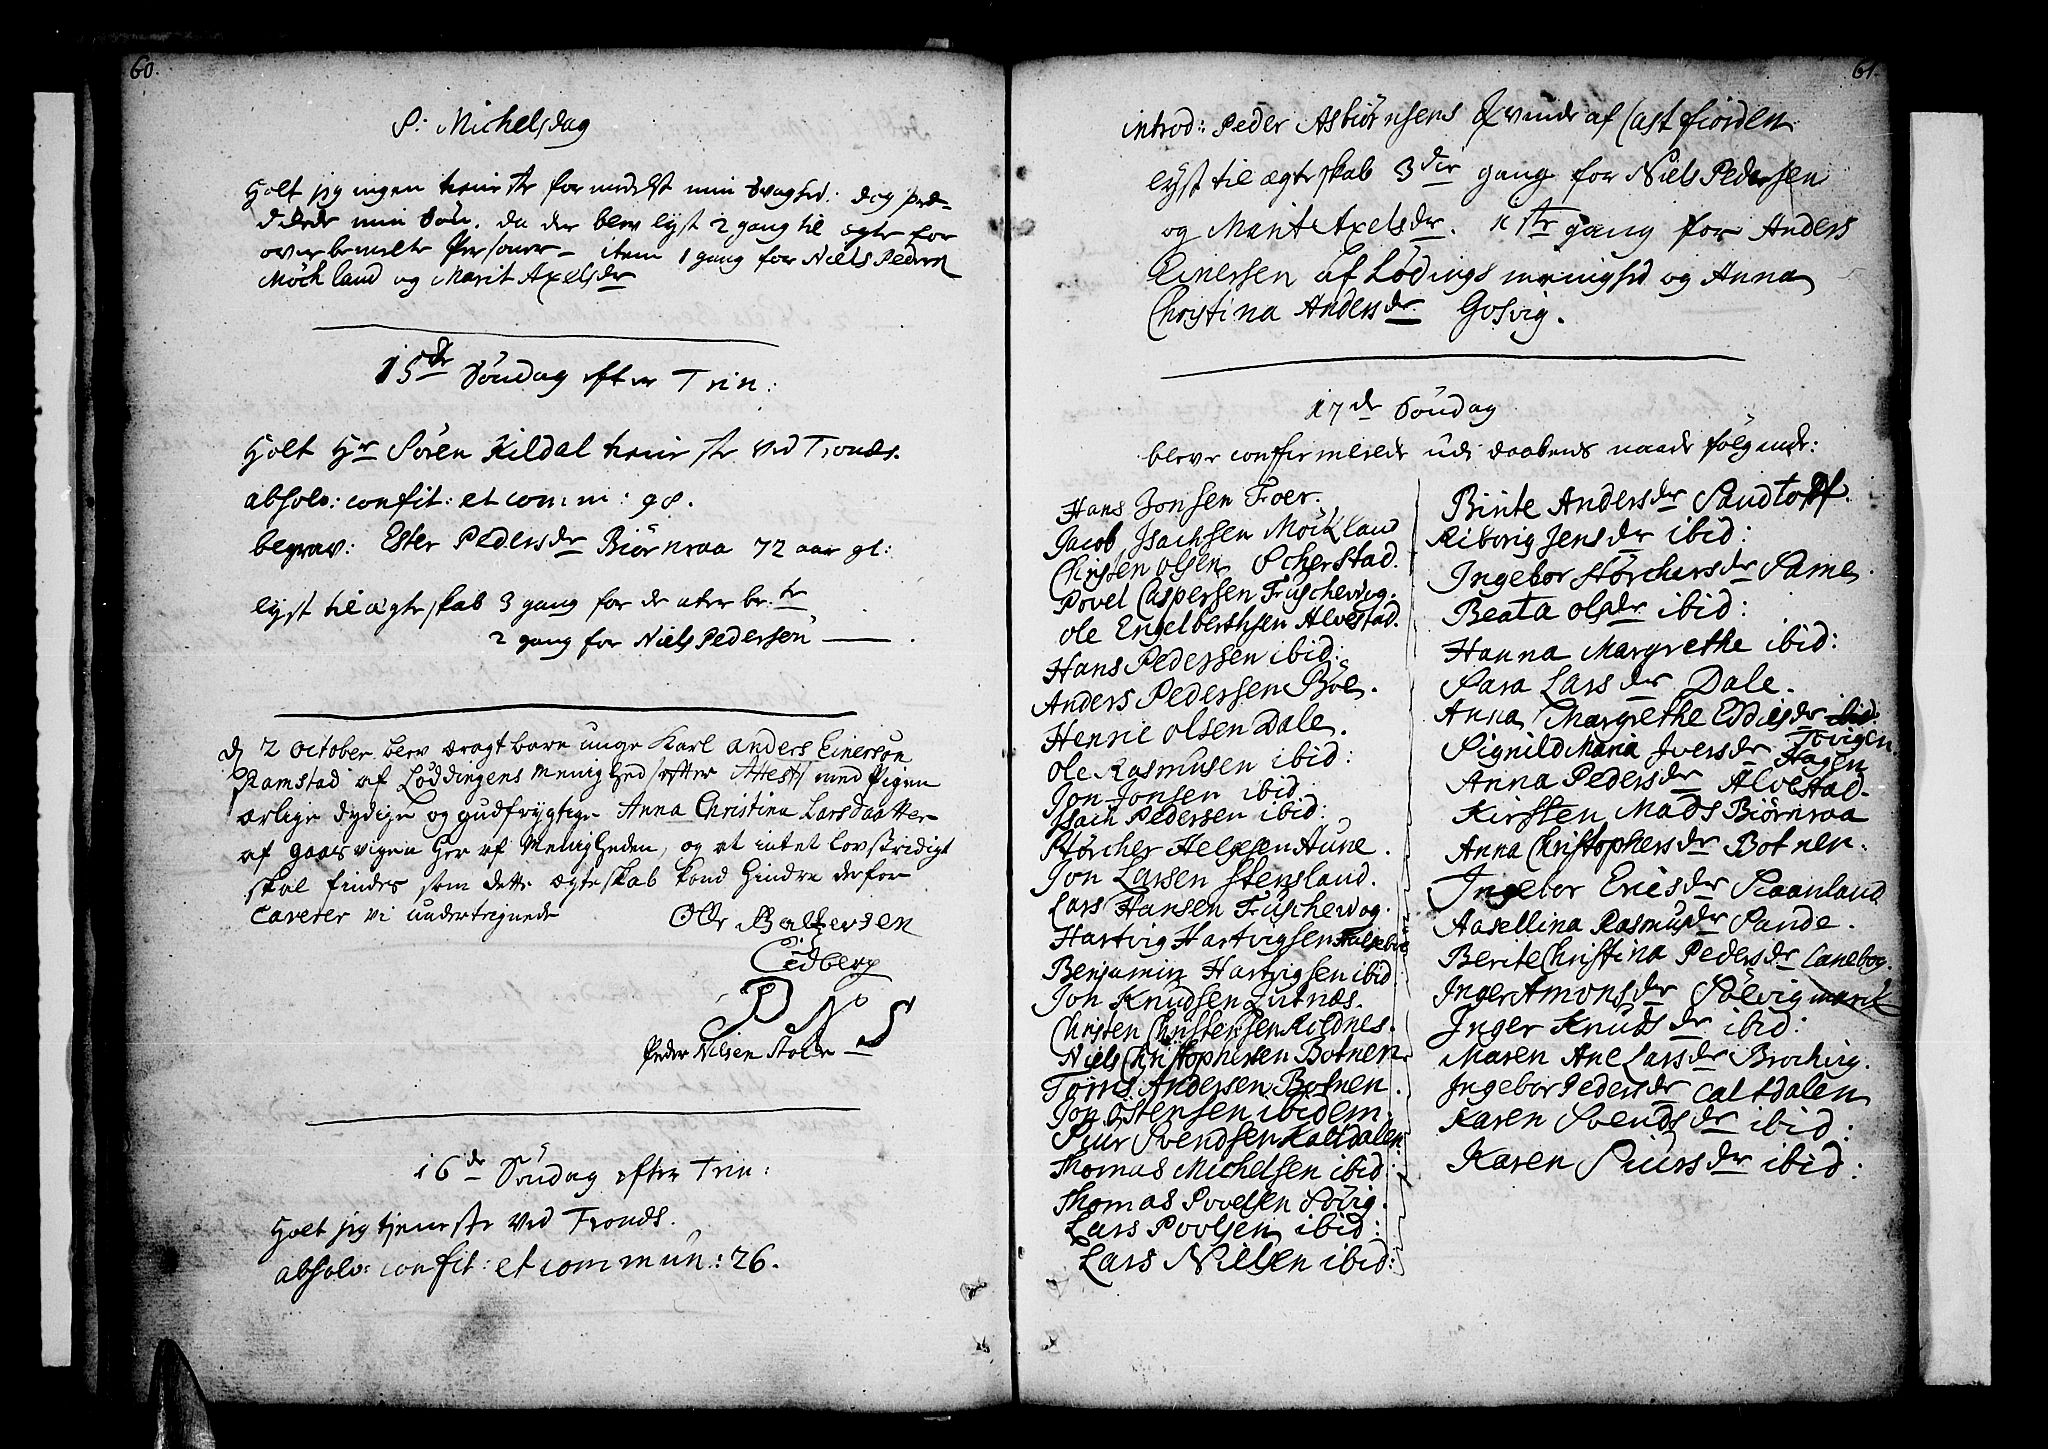 60.
S: Michelsdag
Holt jeg ingen tieneste formedelst min Svaghed: dog præ-
dikede min Søn. da der blev lyst 2 gang til ægte for
overbemelte Personer – item 1 gang for Niels Peders
Möckland og Marit Axelsdr
15de Söndag efter Trin:
Holt Hr Sören Kildal tieneste ved Trondæ.
absolv: confit: et comm: 98.
begrav: Ester Pedersdr Biörnraa 72 aar gl:
lyst til ægteskab 3 gang for de aterbe:te
2 gang for Niels Pedersen —
d 2 October blev ææragtbare unge Karl Anders Einersön
Ramstad af Löddingens Menighed efter Attest med Pigen
ærlige dydige og gudfrygtige Anna Christina Larsdaatter
af Gaasvigen her af Menigheden, og at intet lovstridigt
skal findes som dette ægteskab kand hindre derfor
Caverer vi undertegnede
Olle Baltzersen
Cedberg
P N S
Peder Nilsen Stolle
16de Söndag efter Trin:
Holt jeg tjeneste ved Tronds.
absolv: confit: et commun: 26.
61.
introd: Peder Asbiörnsens Qvinde af Castfiorden
lyst til ægteskab 3die gang for Niels Pedersen
og Marit Axelsdr. 1ste gang for Anders
Einersen af Lødings menighed og Anna
Christina Andersdr Gosvig.
17de Söndag
bleve confirmerede udi daabens naade følgende:
Hans Jonsen Foer.
Jacob Isachsen Möckland
Christen Olsen Scherstad.
Povel Caspersen Fuschevog.
Ole Engelberthsen Alvestad.
Hans Pedersen ibid:
Anders Pedersen Böe.
Henric Olsen Dale
Ole Rasmusen ibid:
Jon Jonsen ibid
Isach Pedersen ibid:
Störcher Helgesen Aune.
Jon Larsen Stensland.
Lars Hansen Fuschevog.
Hartvig Hartvigsen
Benjamin Hartvigsen ibid
Jon Knudsen Lutnæs.
Christen Christensen Roldnes.
Niels Christophersen Botnen
Törris Andersen Botnen.
Jon Östensen ibidem.
Siur Svendsen Kaltdalen
Thomas Michelsen ibid:
Thomas Povelsen Sövig.
Lars Povlsen ibid:
Lars Nielsen ibid:
Birite Andersdr Sandtorf.
Riborig Jensdr ibid:
Ingebor Störchersdr Same.
Beata Olsdr ibid:
Hanna Margrethe ibid:
Sara Larsdr Dale.
Anna Margrethe Eddisdr ibid:
Tövigen
Signild Maria Iversdr Hagen
Anna Pedersdr Alvestad.
Kirsten Mads Biörnraa
Anna Christophersdr Botnen.
Ingebor Ericsdr Skaanland
Aasellina Rasmusdr Sande.
Berite Christina Pedersdr Lanebog.
Inger Amonsdr Sölvigmark
Inger Knudsdr ibid:
Maren Ane Larsdr Brochvig.
Ingebor Pedersdr Caltdalen
Karen Svendsdr ibid:
Karen Siursdr ibid: